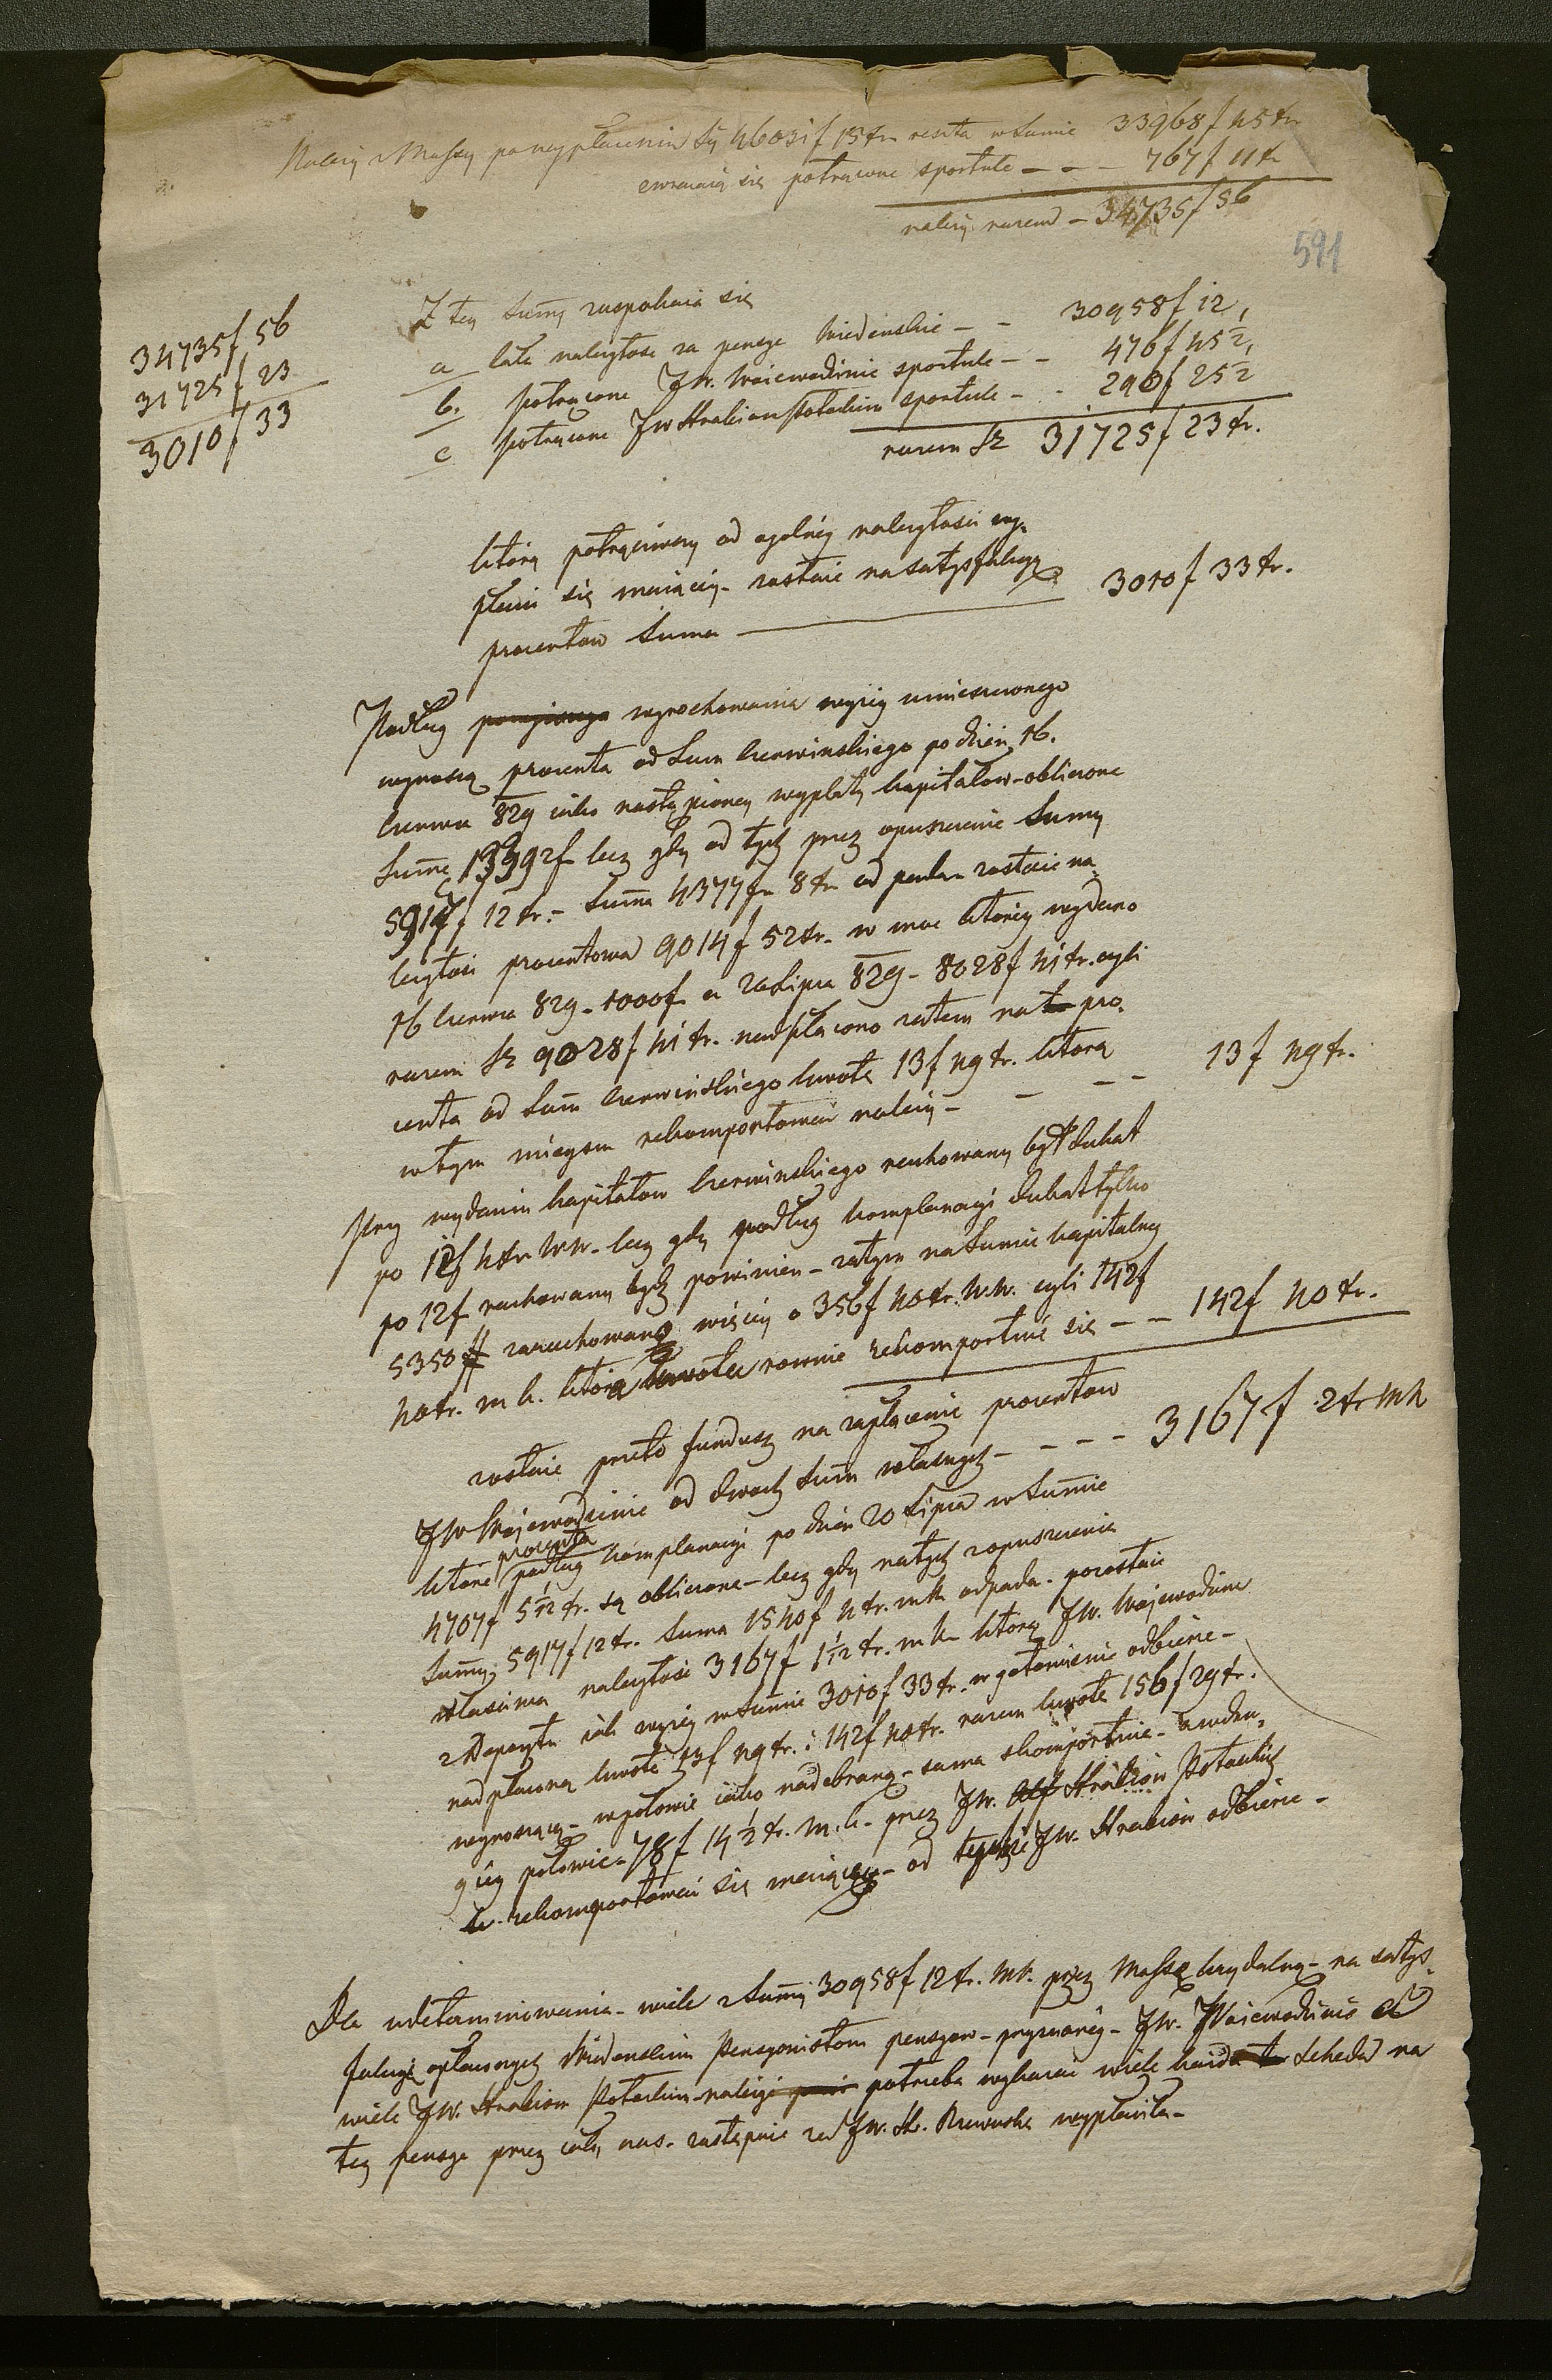 Należy z Massy po wypłaceniu Sy 46031f 15 kr reszta w Sumie 33968f 45 kr
zwracaią się potrącone sportule – – – 767f 11 kr
należy razem – 34735f 56
591
Z tey Sumy zaspokaia się
34735f 56
31725f 23
3010f 33
a cała należytość za pensye Wiedeńskie – – 30958f 12
b. potrącone JW. Woiewodzinie sportule – – 476f 45½
c potrącone JW Hrabiom Potockim sportule – – 290f 25½
razem Sz 31725f 23 kr.
którą potrąciwszy od ogolney należytości wy-
płacić się maiącey – zostaie na satysfakcyą
procentow Suma — 3010f 33 kr.
Podług wyrachowania wyżey umieszczonego
wynoszą procenta od Sum Czerwinskiego po dzien 16.
Czerwca 829 iako nastąpioney wypłaty kapitałow – obliczone
Summę 13392f lecz gdy od tych przez opuszczenie Sumy
5917f 12 kr. – Suma 4377f 8 kr odpada zostaie na-
leżytość procentowa 9014f 52 kr. w moc ktorey wydano
16 Czerwca 829 – 1000f a 20 Lipca 829 – 8028f 41 kr. czyli
razem Sz 9028f 41 kr. nadpłacono zatem na pro-
centa od Sum Czerwinskiego kwotę 13f 49 kr. którą
w tym mieyscu rekomportować należy – – – – 13f 49 kr.
Przy wydaniu kapitałow Czerwinskiego rachowany był dukat
po 12f 4 kr WW. lecz gdy podług komplanacyi dukat tylko
po 12f rachowany bydź powinien – zatym na Sumie kapitalney
5350 # zarachowano więcey o 356f 40 kr. W.W. czyli 142f
40 kr. m k. ktora kwota rownie rekomportuie się – – 142f 40 kr.
zostaie przeto fundusz na zapłacenie procentow
JW Woiewodzinie od dwoch Sum własnych – – – – 3167f 2 kr MK
ktore procenta podług komplanacyi po dzien 20 Lipca w Summie
4707f 5½ kr. są obliczone – lecz gdy na tych z opuszczenia
Sumy 5917f 12 kr. Suma 1540f 4 kr. mk odpada – pozostaie
właściwa należytość 3167f 1½ kr. m k – którą JW. Woiewodzina
z Depozytu iak wyżey w Sumie 3010f 33 kr. w gotowiźnie odbierze –
nadpłaconą kwotę 13f 49 kr. i 142f 40 kr. razem kwotę 156f 29 kr.
wynoszącą – w połowie iako nadebraną – sama skomportuie – a w dru-
giey połowie – 78f 14½ kr. m. k – przez JW. Hrabiow Potockich
rekomportować się maiącą – od tychże JW. Hrabiow odbierze –
Dla udeterminowania – wiele z Sumy 30958f 12 kr. MK. przez Massę krydalną – na satys-
fakcyą opłaconych Wiedenskim Pensyonistom pensyow – przyznaney – JW. Woiewodzinie a
wiele JW. Hrabiom Potockim należy potrzeba wykazać wiele każda Scheda na
tey pensye przez cały czas – zastępuie zaś JW. Hr. Rzewuska wypłaciła –